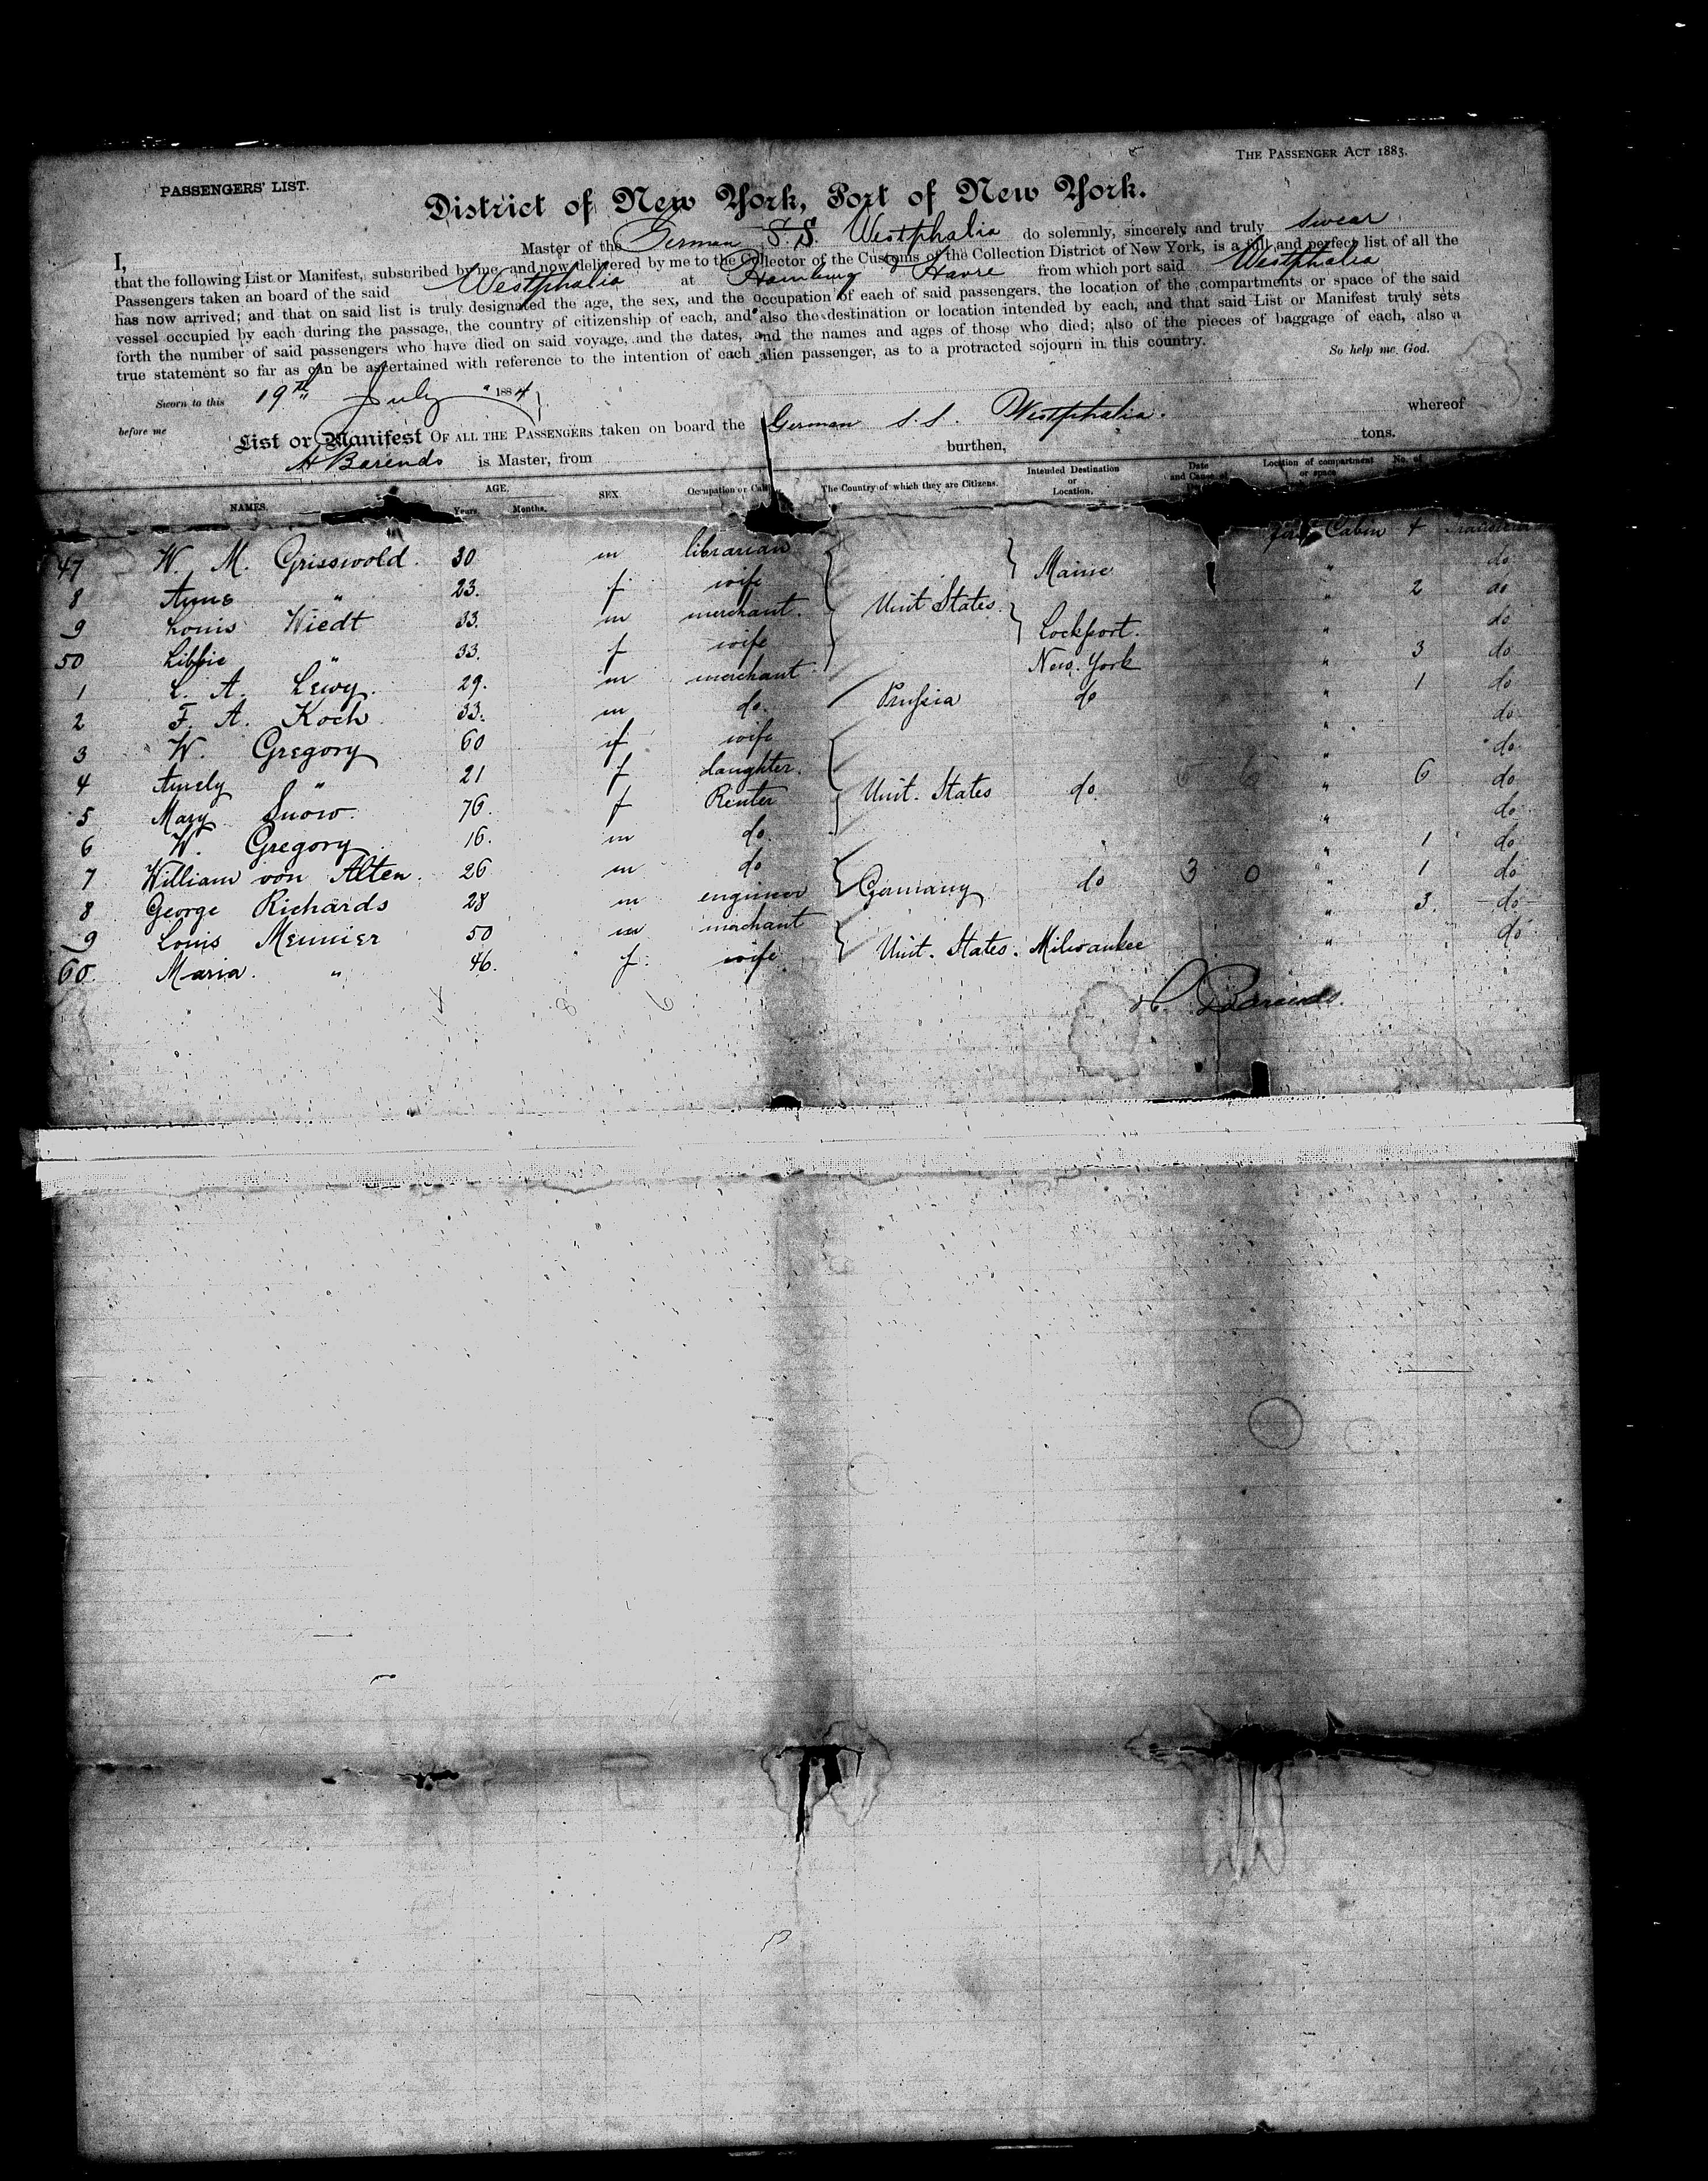 THE PASSENGER ACT 1883.
PASSENGERS' LIST.
District of New York, Port of New York.
I, Master of the German S.S. Westphalia do solemnly, sincerely and truly swear
that the following List or Manifest, subscribed by me, and now delivered by me to the Collector of the Customs of the Collection District of New York, is a full and perfect list of all the
Passengers taken an board of the said Westphalia at Hamburg & Havre from which port said Westphalia
has now arrived; and that on said list is truly designated the age, the sex, and the occupation of each of said passengers, the location of the compartments or space of the said
vessel occupied by each during the passage, the country of citizenship of each, and also the destination or location intended by each, and that said List or Manifest truly sets
forth the number of said passengers who have died on said voyage, and the dates, and the names and ages of those who died; also of the pieces of baggage of each, also a
true statement so far as can be ascertained with reference to the intention of each alien passenger, as to a protracted sojourn in this country.
So help me God.
Sworn to this 19th July 1884
before me
List or Manifest OF ALL THE PASSENGERS taken on board the German S.S. Westphalia. whereof
H Barends is Master, from burthen, tons.
NAMES. AGE. Years. Months. SEX. Occupation or The Country of which they are Citizens. Intended Destination or Location. Date and Cause of Location of compartment or space No. of
47 W. M. Grisswold 30 m librarian Maine first Cabin 4
8 " 23. f wife Unit States. " do
9 Louis Wiedt 33. m merchant. Lockport. " 2 do
50 Libbie " 33. f wife " do
1 L. A. Lewy. 29. m merchant New York " 3 do
2 F. A. Koch 33. m do. Prussia do " 1 do
3 W. Gregory 60 f wife " do
4 " 21 f daughter. " do
5 Mary Snow. 76. f Renter Unit. States do. " 6 do
6 W. Gregory 16. m do. " do
7 William von Alten. 26 m do Germany do 3 0 " 1 do
8 George Richards 28 m engineer " 1 do
9 Louis Meunier 50 m merchant Unit. States. Milwaukee " 3. do
60. Maria. " 46. f. wife " do
H. Barends.